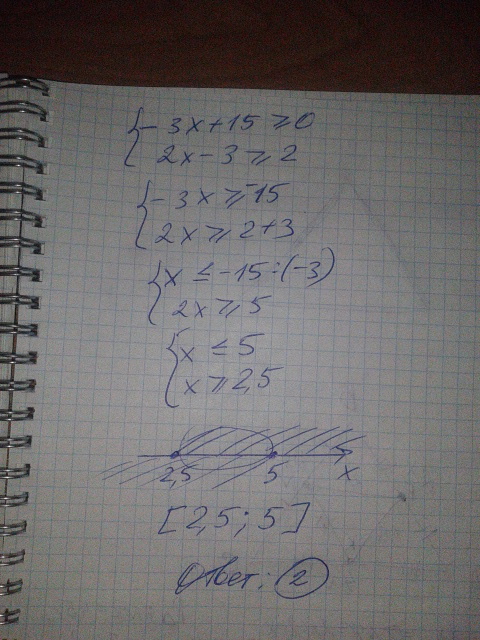 { -3x+15 ≥ 0
2x-3 ≥ 2
{ -3x ≥ -15
2x ≥ 2+3
{ x ≤ -15:(-3)
2x ≥ 5
{ x ≤ 5
x ≥ 2,5
2,5 5 x
[2,5; 5]
Ответ: 2